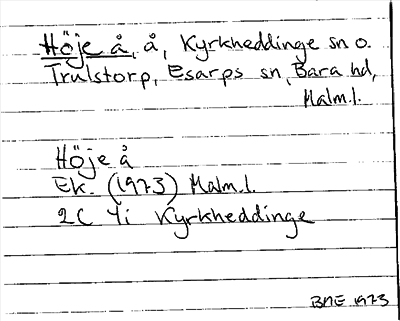 Höje å, å, Kyrkheddinge sn o.
Trulstorp, Esarps sn, Bara hd,
Malm.l.
Höje å
Ek. (1973) Malm.l.
2C 4i Kyrkheddinge
BME 1973